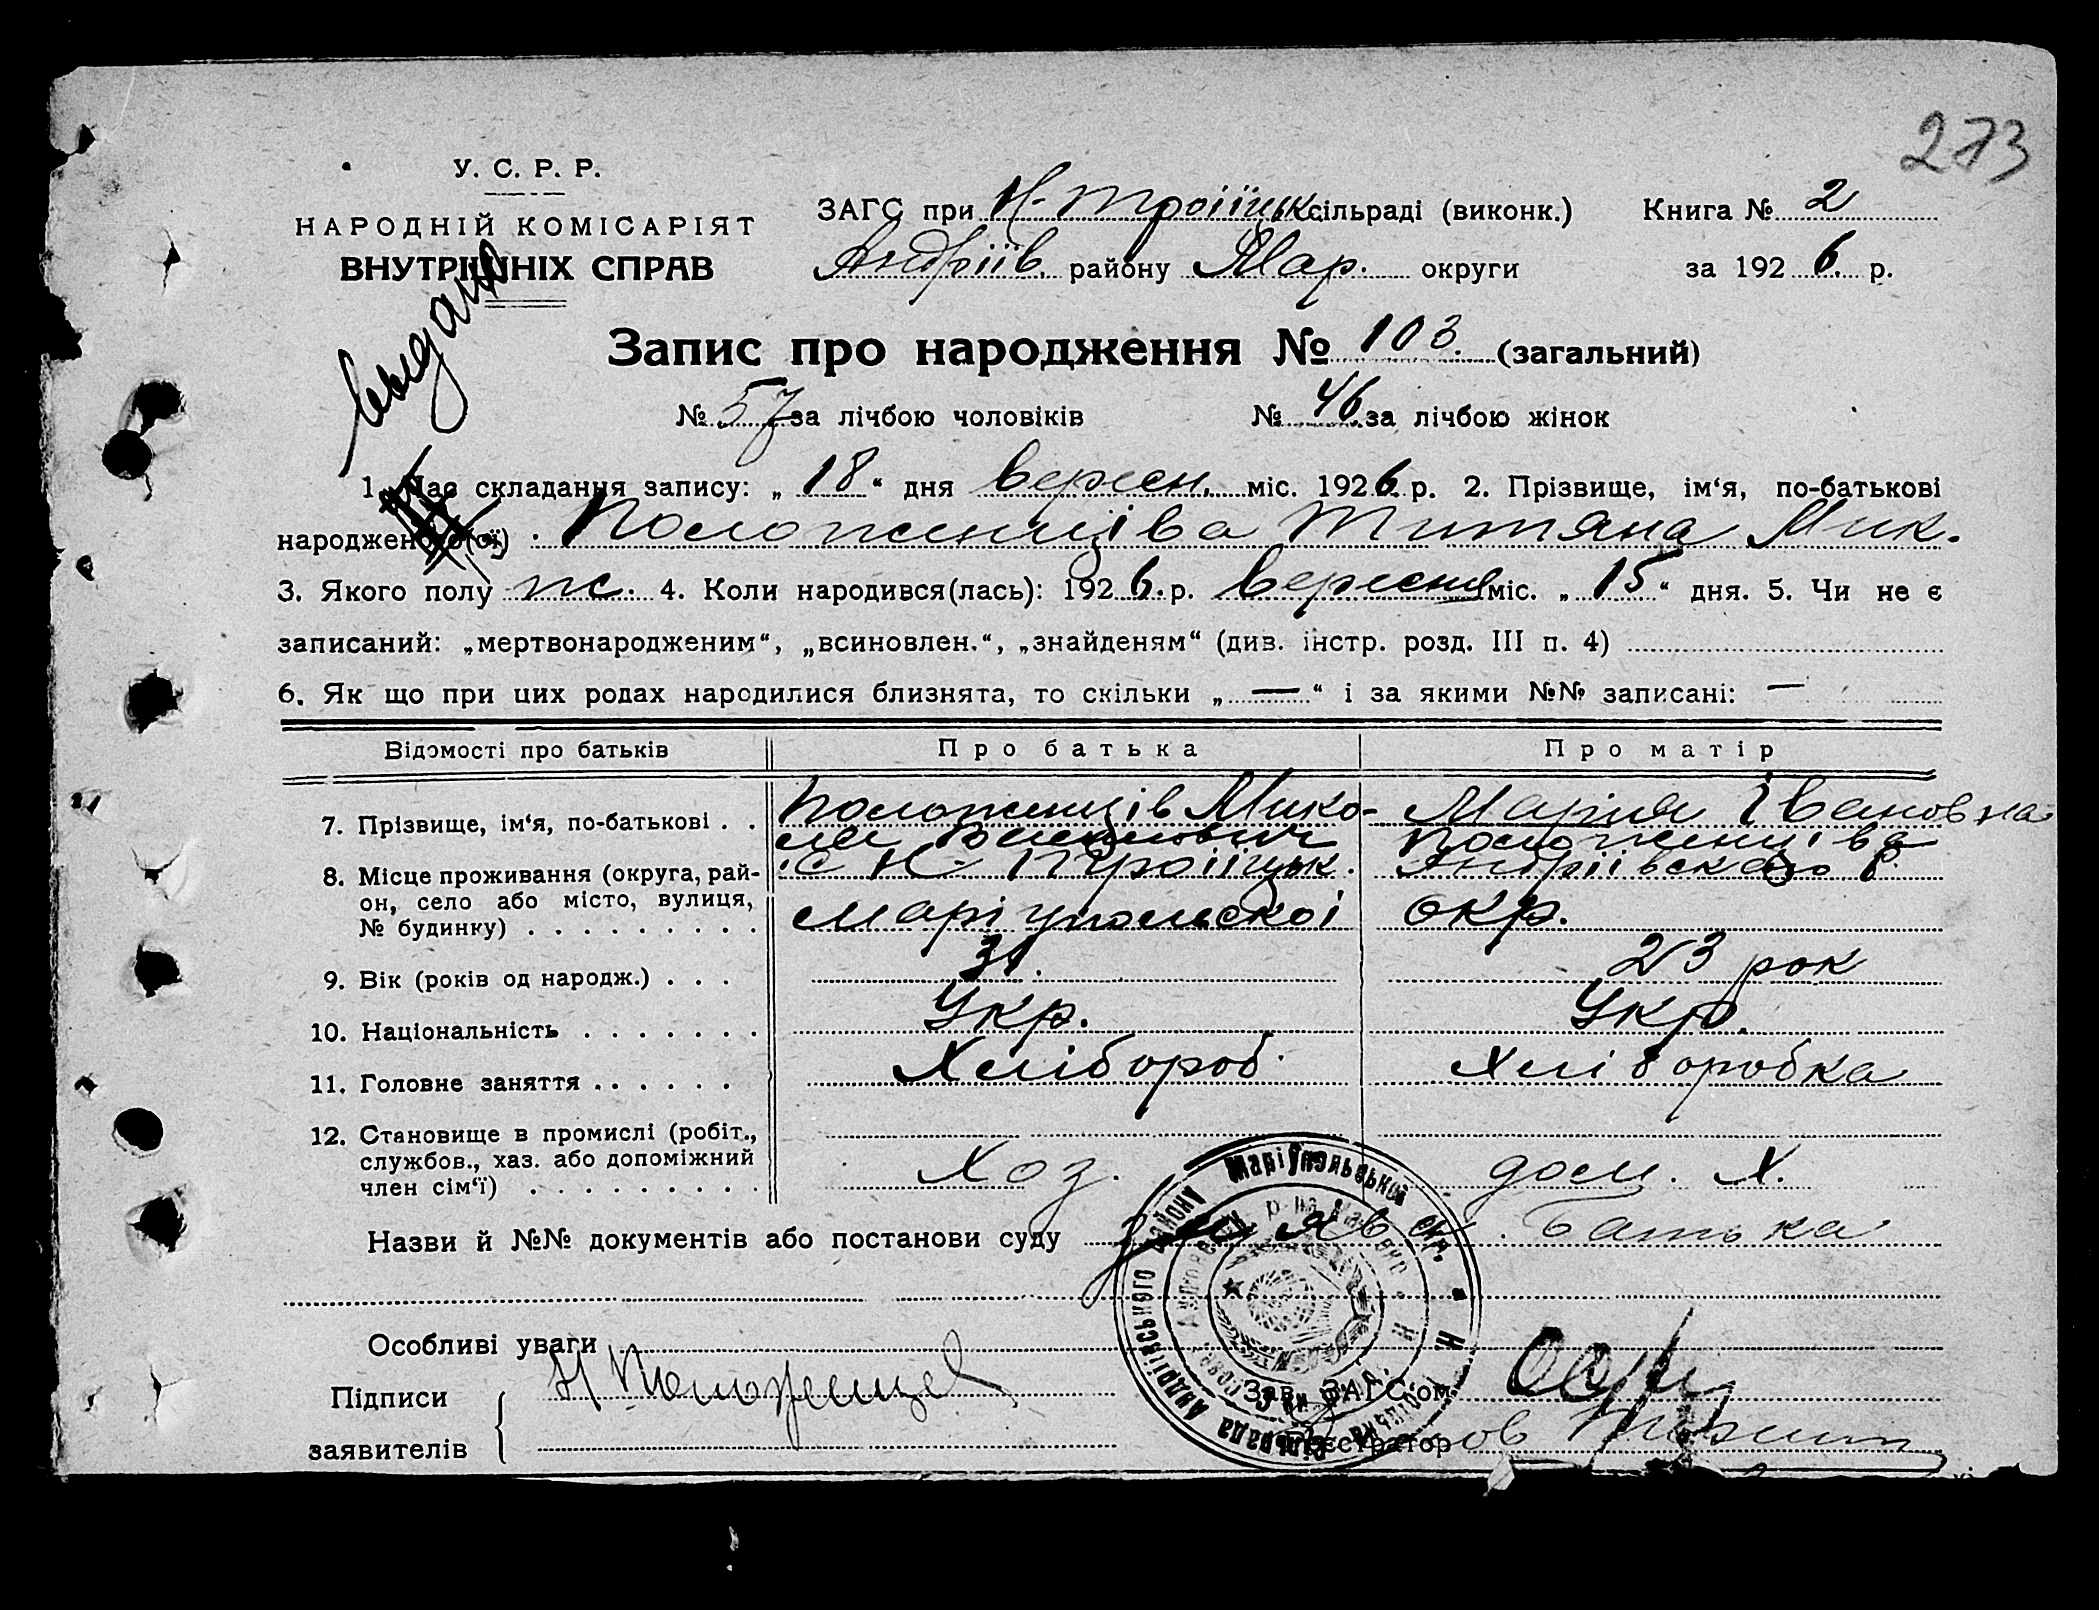 273
У. С. Р. Р.
НАРОДНІЙ КОМІСАРІЯТ
ВНУТРІШНІХ СПРАВ
ЗАГС при Н-Троіїцьк. сільраді (виконк.) Книга № 2
Андріїв. району Мар. округи за 1926 р.
выдано
Запис про народження № 103. (загальний)
№ 57 за лічбою чоловіків № 46 за лічбою жінок
1. Час складання запису: „ 18 “ дня вересн. міс. 1926 р. 2. Прізвище, ім‘я, по-батькові
народженого(ої) Положенціва Титяна Мик.
3. Якого полу ж. 4. Коли народився(лась): 1926 р. вересня міс. „ 15 “ дня. 5. Чи не є
записаний: „мертвонародженим“, „всиновлен.“, „знайденям“ (див. інстр. розд. III п. 4)
6. Як що при цих родах народилися близнята, то скільки „ — “ і за якими №№ записані: —
Відомості про батьків Про батька Про матір
7. Прізвище, ім‘я, по-батькові . . Положенців Мико- Марія Івановна
ла Положенціва
8. Місце проживання (округа, рай- с Н-Троіїцьк. Андріівскаго р.
он, село або місто, вулиця,
№ будинку) Маріупольскоі окр.
9. Вік (років од народж.) . . . 31. 23 рок
10. Національність Укр. Укр.
11. Головне заняття Хлібороб Хліборобка
12. Становище в промислі (робіт.,
службов., хаз. або допоміжний Хоз. дом. Х.
член сім‘ї)
Назви й №№ документів або постанови суду Заяв. Батька
Особливі уваги
Підписи Н Положенцев Зав. ЗАГС‘ом
заявителів Реєстратор
Сільрада Андріївського району Маріупольської окр.